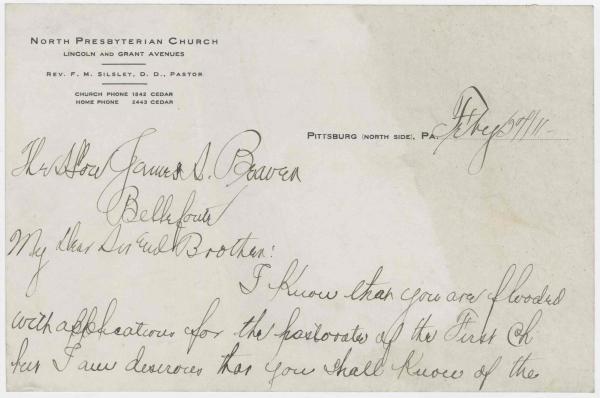 NORTH PRESBYTERIAN CHURCH
LINCOLN AND GRANT AVENUES
REV. F. M. SILSLEY, D. D., PASTOR
CHURCH PHONE 1842 CEDAR
HOME PHONE 2443 CEDAR
PITTSBURG (NORTH SIDE), PA. Feby
The Hon James A. Beaver
Bellefonte
My dear Sir and Brother:
I know that you are flooded
with applications for the pastorate of the First Ch
but I am desirous that you shall know of the